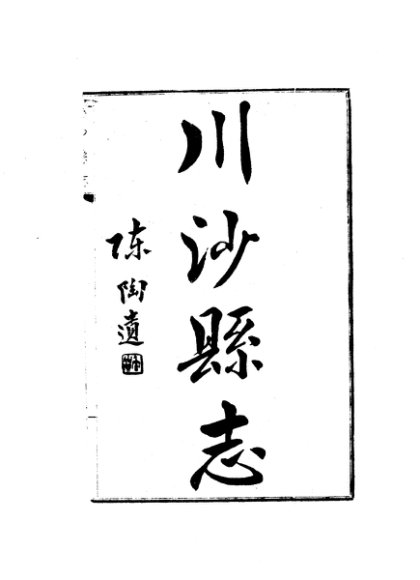 川沙縣志
陳陶遺